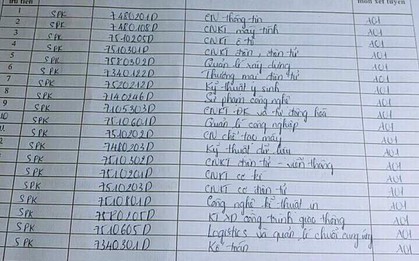 1 SPK 7480201D CN thông tin A01
2 SPK 7480108D CNKT máy tính A01
3 SPK 7510205D CNKT ô tô A01
4 SPK 7510301D CNKT điện, điện tử A01
5 SPK 7580302D Quản lí xây dựng A01
6 SPK 7340122D Thương mại điện tử A01
7 SPK 7520212D Kỹ thuật y sinh A01
8 SPK 7140246D Sư phạm công nghệ A01
9 SPK 7510303D CNKT ĐK và tự động hóa A01
SPK 7510601D Quản lí công nghiệp A01
SPK 7510202D CN chế tạo máy A01
SPK 7480203D Kỹ thuật dữ liệu A01
SPK 7510302D CNKT điện tử - viễn thông A01
SPK 7510201D CNKT cơ khí A01
SPK 7510203D CNKT cơ điện tử A01
SPK 7510801D Công nghệ kĩ thuật in A01
SPK 7580205D KTXD công trình giao thông A01
SPK 7510605D Logistics và quản lí chuỗi cung ứng A01
SPK 7340301D Kế toán A01